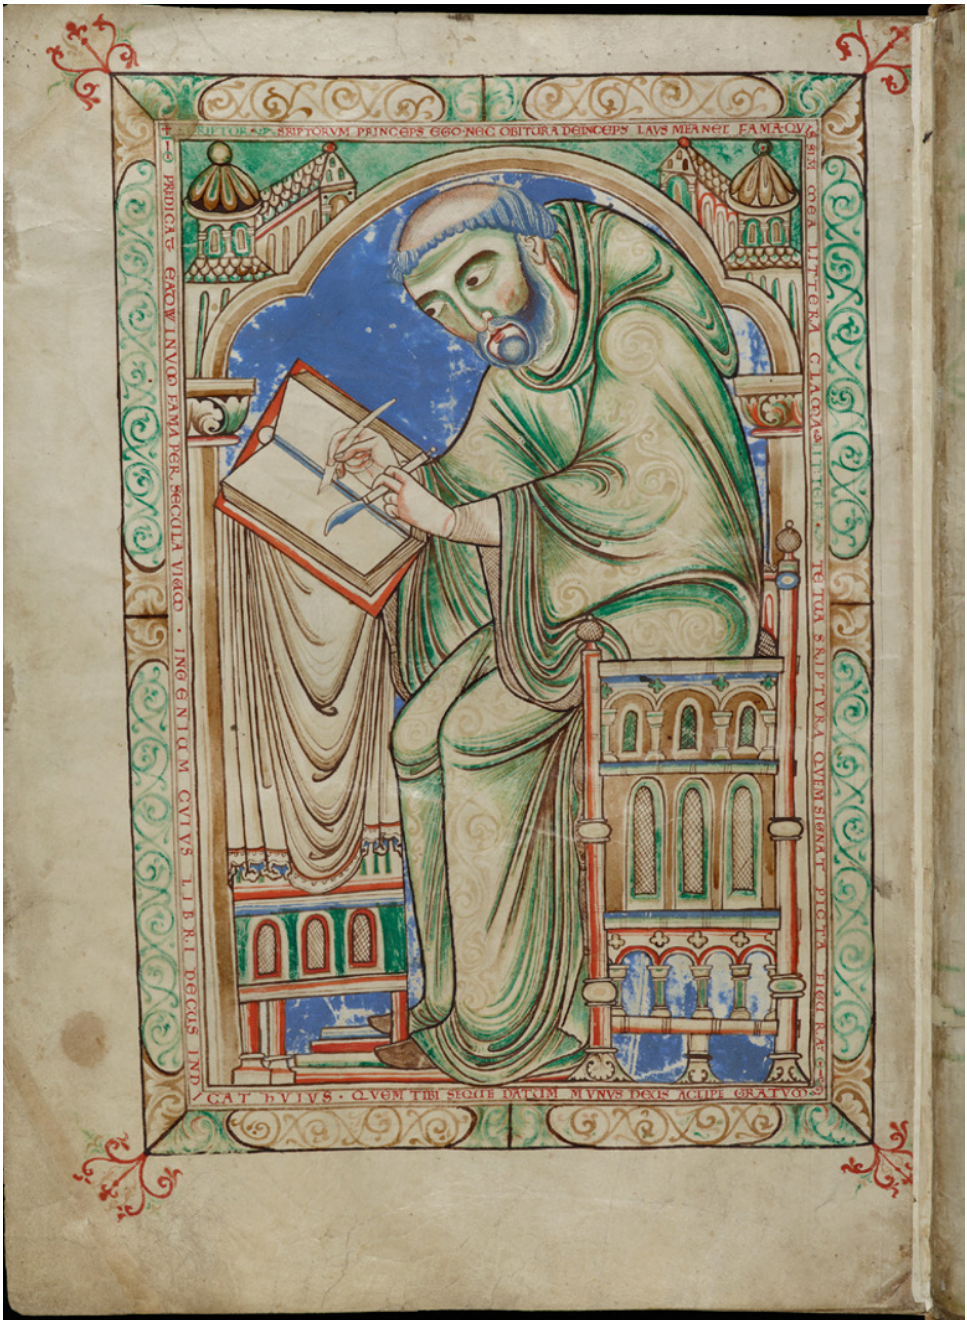 SRIPTOR SRIPTORVM PRINCEPS EGO NEC OBITURA DEINCEPS LAVS MEA NEC FAMA QVI
SIM MEA LITTERA CLAMA LITTER · TE TUA SRIPTVRA QVEM SIGNAT PICTA FIGURA
PREDICAT EADWINVM FAMA PER SECULA VIVVM · INGENIUM CVIVS LIBRI DECUS INDI
CAT HVIVS · QVEM TIBI SEQUE DATUM MVNVS DEUS ACCIPE GRATVM